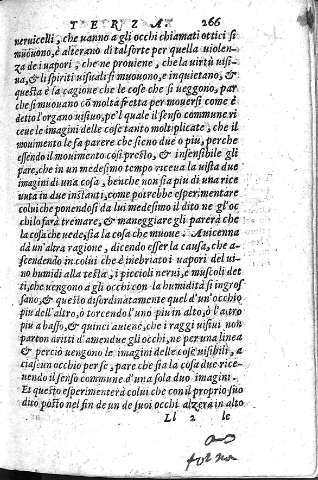 TERZA. 266
neruicelli, che uanno a gli occhi chiamati ottici si
muouono, è alterano di tal sorte per quella uiolen-
za de i uapori, che ne prouiene, che la uirtù uisi-
ua, & li spiriti uisuali si muouono, e inquietano, &
questa è la cagione che le cose che si ueggono, par
che si muouano cō molta fretta per mouersi come è
detto l'organo uisiuo, pe'l quale il senso commune ri
ceue le imagini delle cose tanto moltiplicate, che il
mouimento le fa parere che sieno due o più, perche
essendo il mouimento così presto, & insensibile gli
pare, che in un medesimo tempo riceua la uista due
imagini di una cosa, benche non sia piu di una rice
uuta in due instanti, come potrebbe esperimentare
colui che ponendosi da lui medesimo il dito ne gl'oc
chi lo farà tremare, & maneggiare gli parerà che
la cosa che uede, sia la cosa che muoue. Auicenna
dà un'altra ragione, dicendo esser la causa, che a-
scendendo in colui che è inebriato i uapori del ui-
no humidi alla testa, i piccioli nerui, e muscoli det
ti, che uengono a gli occhi con la humidità si ingros
sano, & questo disordinatamente quel d'un'occhio
piu dell'altro, ò torcendo l'uno piu in alto, ò l'altro
piu a basso, & quinci auiene, che i raggi uisiui non
parton dritti d'amendue gli occhi, ne per una linea
& perciò uengono le imagini delle cose uisibili, a
ciascun occhio per se, pare che sia la cosa due rice-
uendo il senso commune d'una sola due imagini.
Et questo esperimenterà colui che con il proprio suo
dito posto nel fin de un de suoi occhi alzerà in alto
Ll 2 le